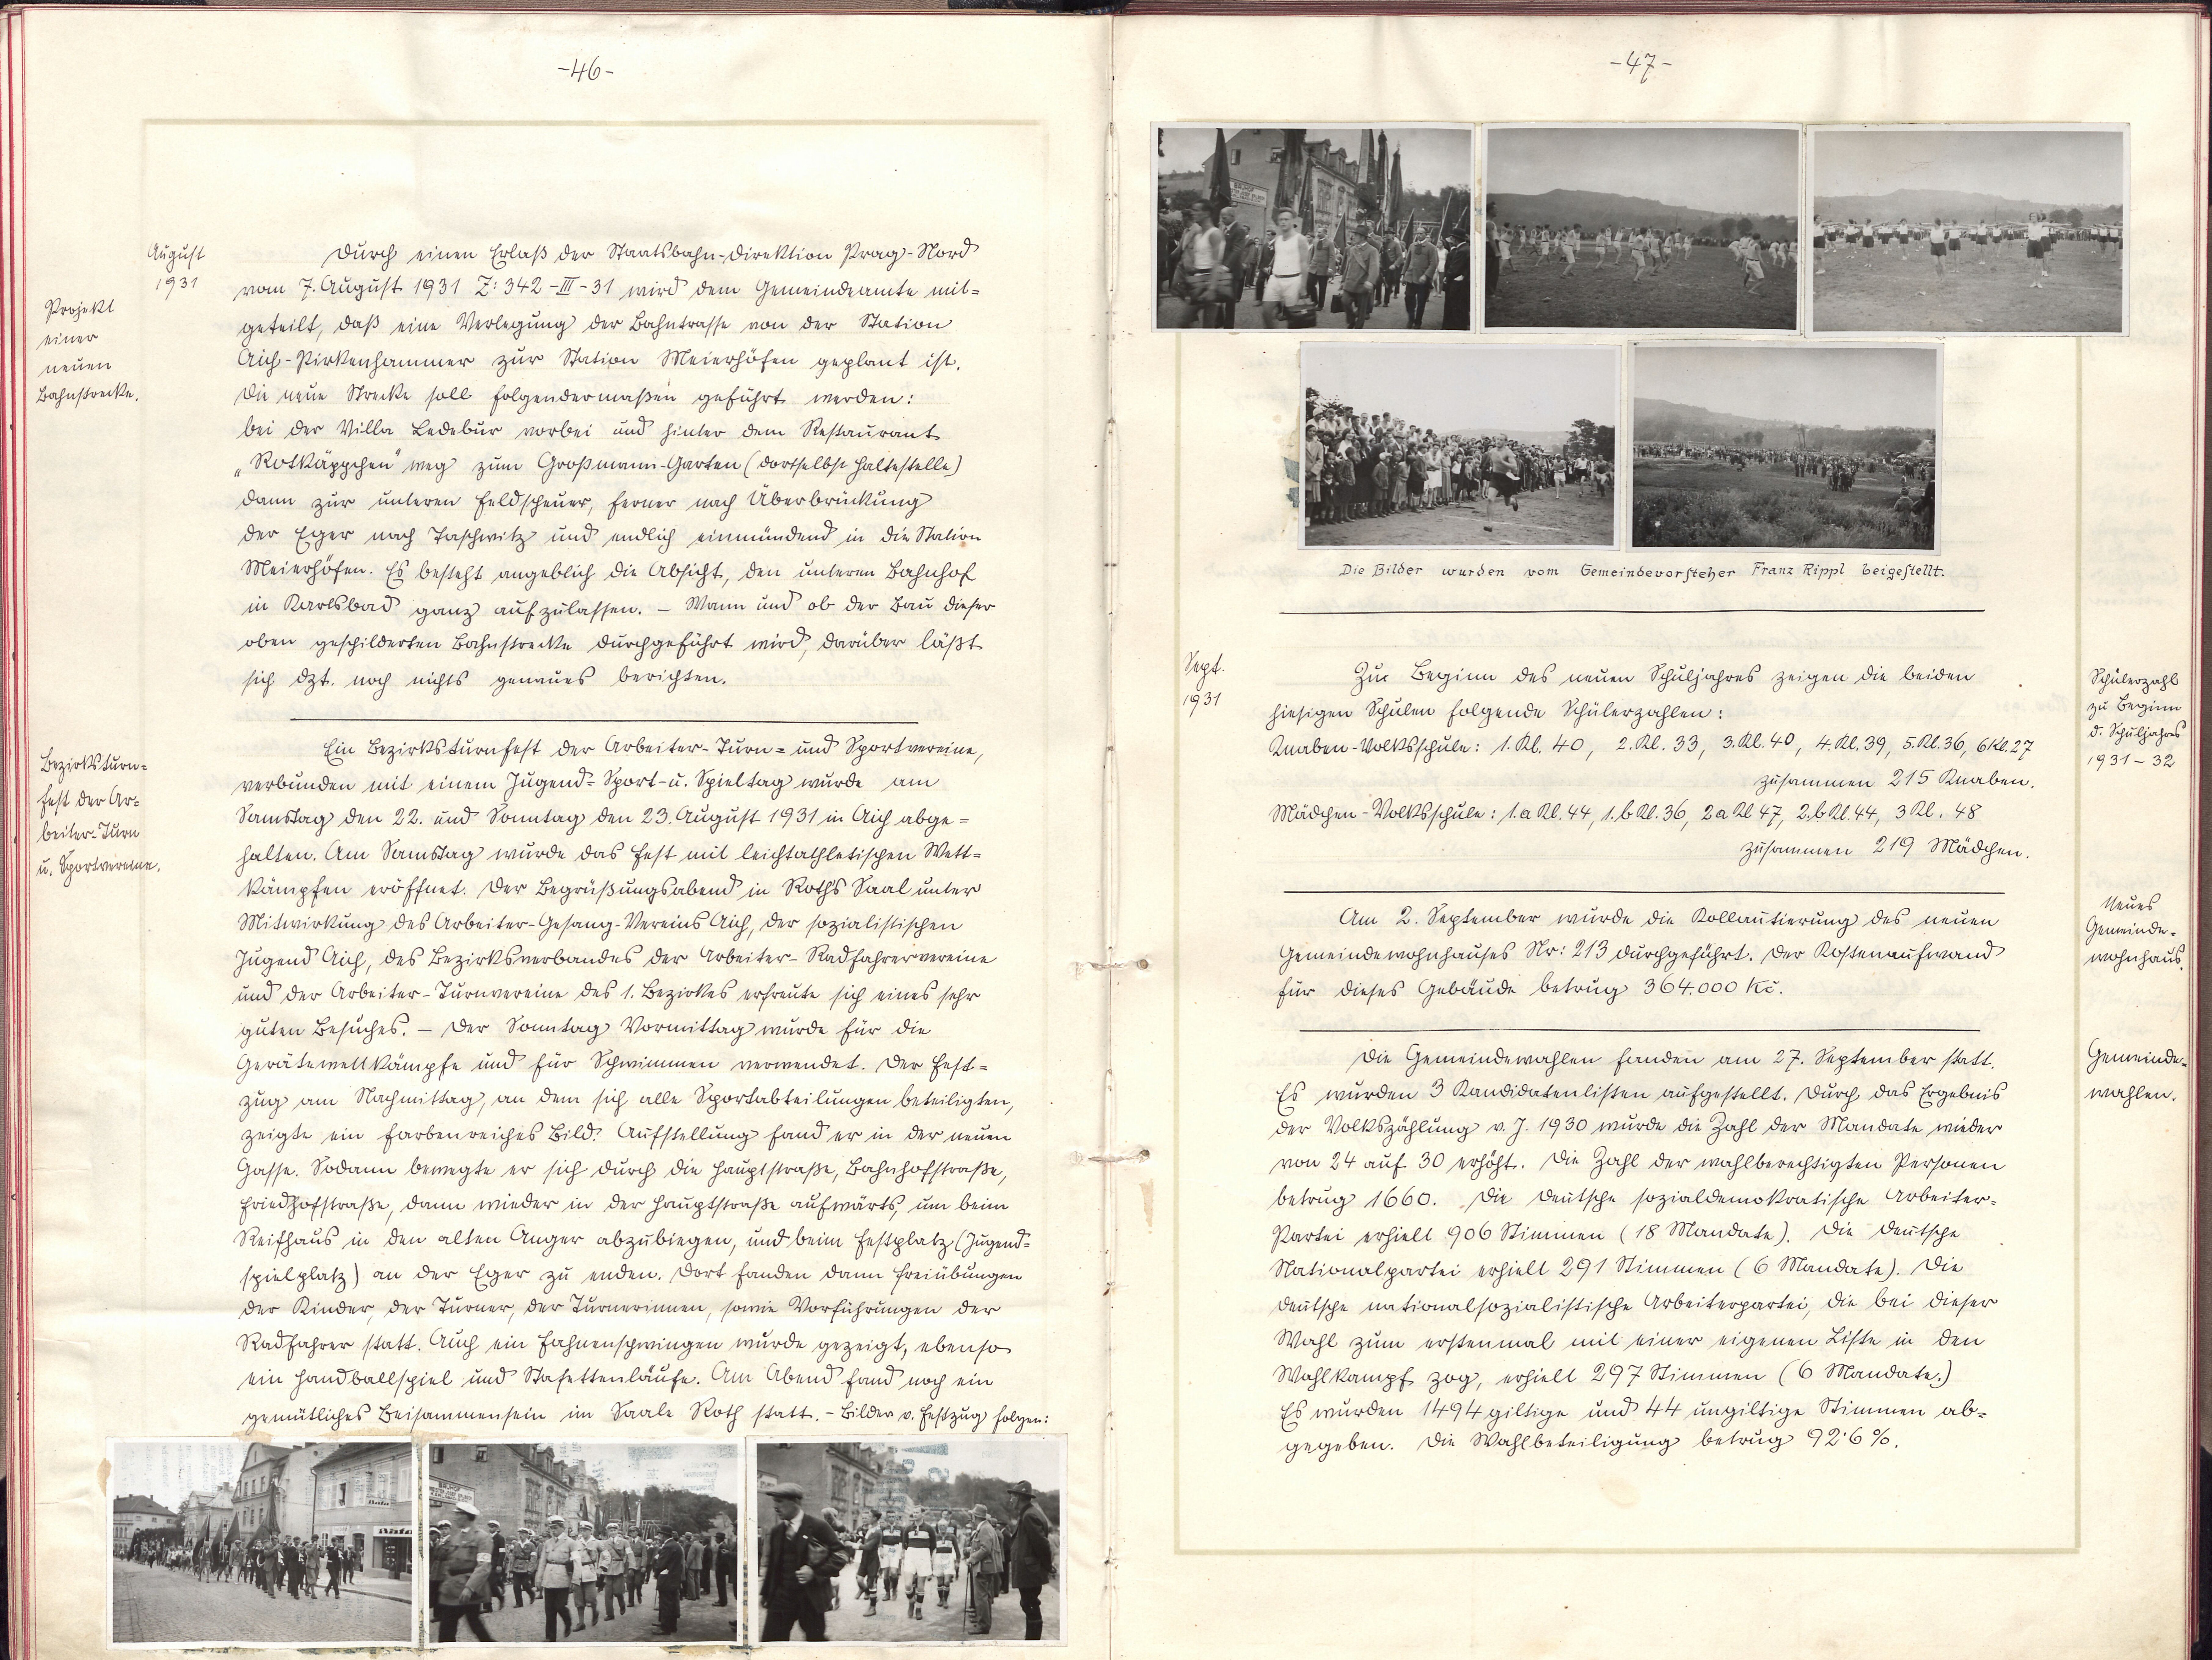 -46-
August
1931
Projekt
einer
neuen
Bahnstrecke.
Durch einen Erlaß der Staatsbahn-Direktion Prag-Nord
vom 7. August 1931 Z: 342-III-31 wird dem Gemeindeamte mit=
geteilt, daß eine Verlegung der Bahntrasse von der Station
Aich-Pirkenhammer zur Station Meierhöfen geplant ist.
Die neue Strecke soll folgendermaßen geführt werden:
bei der Villa Ledebur vorbei und hinter dem Restaurant
„Rotkäppchen" weg zum Großmann-Garten (dortselbst Haltestelle)
dann zur unteren Feldscheuer, ferner nach Überbrückung
der Eger nach Taschwitz und endlich einmündend in die Station
Meierhöfen. Es besteht angeblich die Absicht, den unteren Bahnhof
in Karlsbad ganz aufzulassen. – Wann und ob der Bau dieser
oben geschilderten Bahnstrecke durchgeführt wird, darüber läßt
sich dzt. noch nichts genaues berichten.
Bezirksturn=
fest der Ar=
beiter-Turn
u. Sportvereine.
Ein Bezirksturnfest der Arbeiter-Turn= und Sportvereine,
verbunden mit einem Jugend-Sport-u. Spieltag wurde am
Samstag den 22. und Sonntag den 23. August 1931 in Aich abge=
halten. Am Samstag wurde das Fest mit leichtathletischen Wett=
kämpfen eröffnet. Der Begrüßungsabend in Roths Saal unter
Mitwirkung des Arbeiter-Gesang-Vereins Aich, der sozialistischen
Jugend Aich, des Bezirksverbandes der Arbeiter-Radfahrervereine
und der Arbeiter-Turnvereine des 1. Bezirkes erfreute sich eines sehr
guten Besuches. – Der Sonntag Vormittag wurde für die
Gerätewettkämpfe und für Schwimmen verwendet. Der Fest=
zug am Nachmittag, an dem sich alle Sportabteilungen beteiligten,
zeigte ein farbenreiches Bild. Aufstellung fand er in der neuen
Gasse. Sodann bewegte er sich durch die Hauptstraße, Bahnhofstraße,
Friedhofstraße, dann wieder in der Hauptstraße aufwärts, um beim
Reifhaus in den alten Anger abzubiegen, und beim Festplatz (Jugend=
spielplatz) an der Eger zu enden. Dort fanden dann Freiübungen
der Kinder, der Turner, der Turnerinnen, sowie Vorführungen der
Radfahrer statt. Auch ein Fahnenschwingen wurde gezeigt, ebenso
ein Handballspiel und Stafettenläufe. Am Abend fand noch ein
gemütliches Beisammensein im Saale Roth statt. – Bilder v. Festzug folgen:
Bata
Bata
BAUHOF
-47-
BAUHOF
Die Bilder wurden vom Gemeindevorsteher Franz Rippl beigestellt.
Sept.
1931
Zur Beginn des neuen Schuljahres zeigen die beiden
hiesigen Schulen folgende Schülerzahlen:
Knaben-Volksschule: 1. Kl. 40, 2. Kl. 33, 3. Kl. 40, 4. Kl. 39, 5. Kl. 36, 6 Kl. 27
zusammen 215 Knaben.
Mädchen-Volksschule: 1. a Kl. 44, 1. b Kl. 36, 2 a Kl 47, 2. b Kl. 44, 3 Kl. 48
zusammen 219 Mädchen.
Schülerzahl
zu Beginn
d. Schuljahres
1931-32
Am 2. September wurde die Kollautierung des neuen
Gemeindewohnhauses Nr: 213 durchgeführt. Der Kostenaufwand
für dieses Gebäude betrug 364.000 Kč.
Neues
Gemeinde=
wohnhaus.
Die Gemeindewahlen fanden am 27. September statt.
Es wurden 3 Kandidatenlisten aufgestellt. Durch das Ergebnis
der Volkszählung v. J. 1930 wurde die Zahl der Mandate wieder
von 24 auf 30 erhöht. Die Zahl der wahlberechtigten Personen
betrug 1660. Die deutsche sozialdemokratische Arbeiter-
Partei erhielt 906 Stimmen (18 Mandate). Die deutsche
Nationalpartei erhielt 291 Stimmen (6 Mandate). Die
deutsche nationalsozialistische Arbeiterpartei, die bei dieser
Wahl zum erstenmal mit einer eigenen Liste in den
Wahlkampf zog, erhielt 297 Stimmen (6 Mandate.)
Es wurden 1494 giltige und 44 ungiltige Stimmen ab=
gegeben. Die Wahlbeteiligung betrug 92·6%.
Gemeinde-
wahlen.